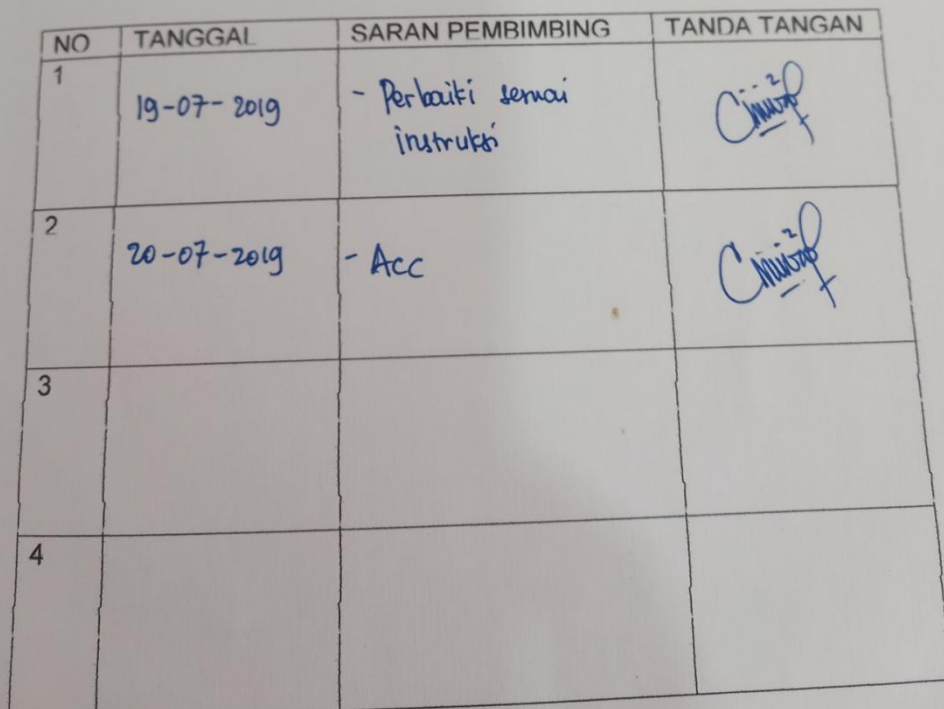 NO TANGGAL SARAN PEMBIMBING TANDA TANGAN
1
19-07-2019 - Perbaiki sesuai
instruksi
2
20-07-2019 - Acc
3
4